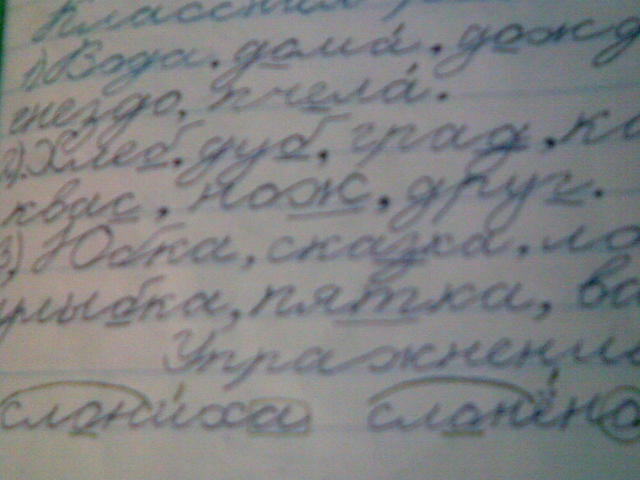 Классная
1) Вода, дома, дожд
гнездо, пчела.
2) Хлеб, дуб, град, к
квас, нож, друг.
3) Юбка, сказка, ло
улыбка, пятка, ва
Упражнени
слониха слонёно